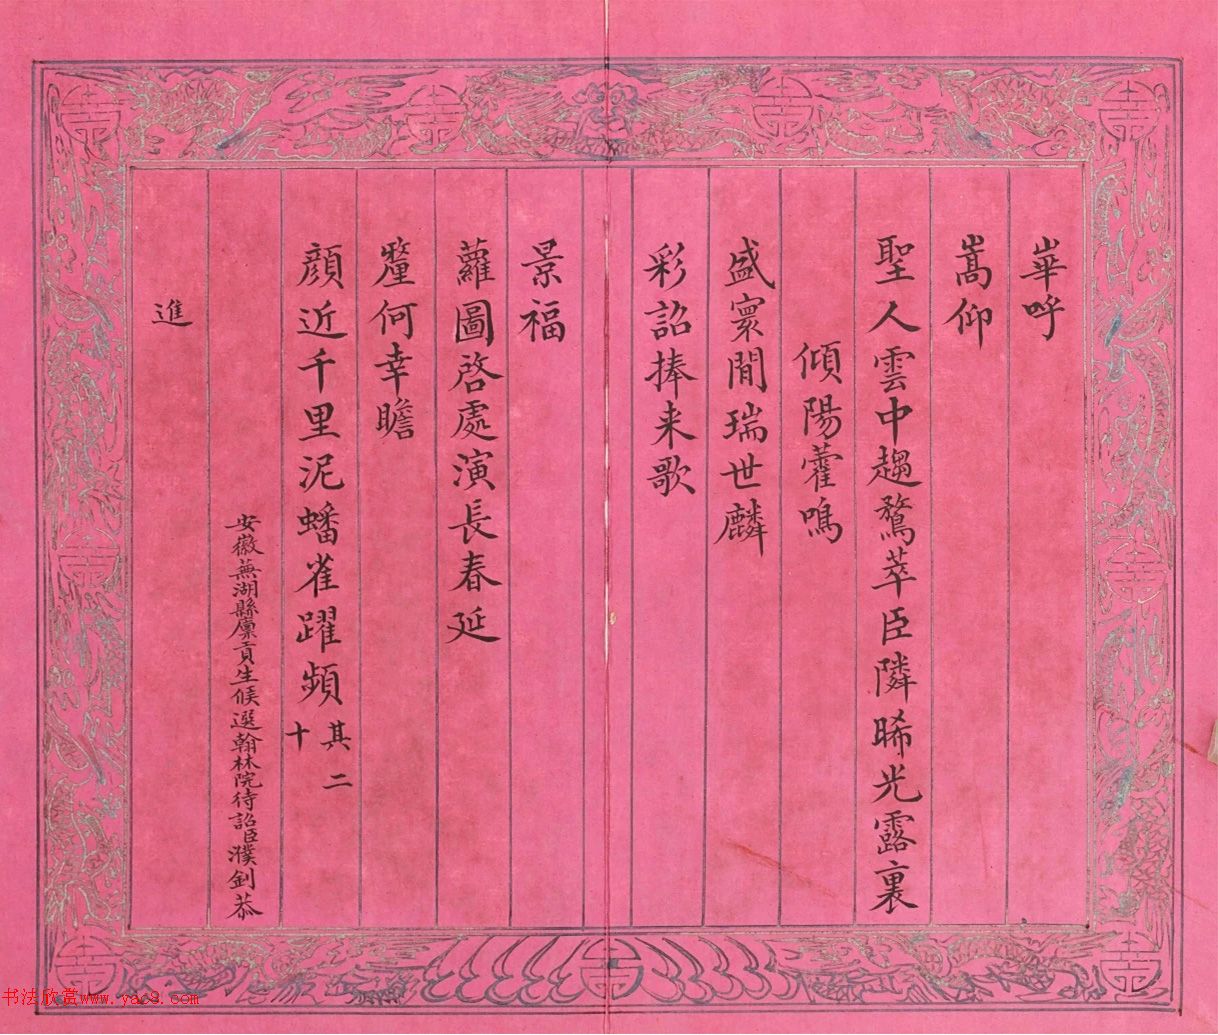 崋呼
嵩仰
聖人雲中趨鶩萃臣隣晞光露裏
傾陽藿鳴
盛寰間瑞世麟
彩詔捧来歌
景福
蘿圖啓處演長春延
釐何幸瞻
顔近千里泥蟠雀躍頻 其二十
安徽蕪湖縣廩貢生候選翰林院待詔臣濮釗恭
進
书法欣赏www.yac8.com